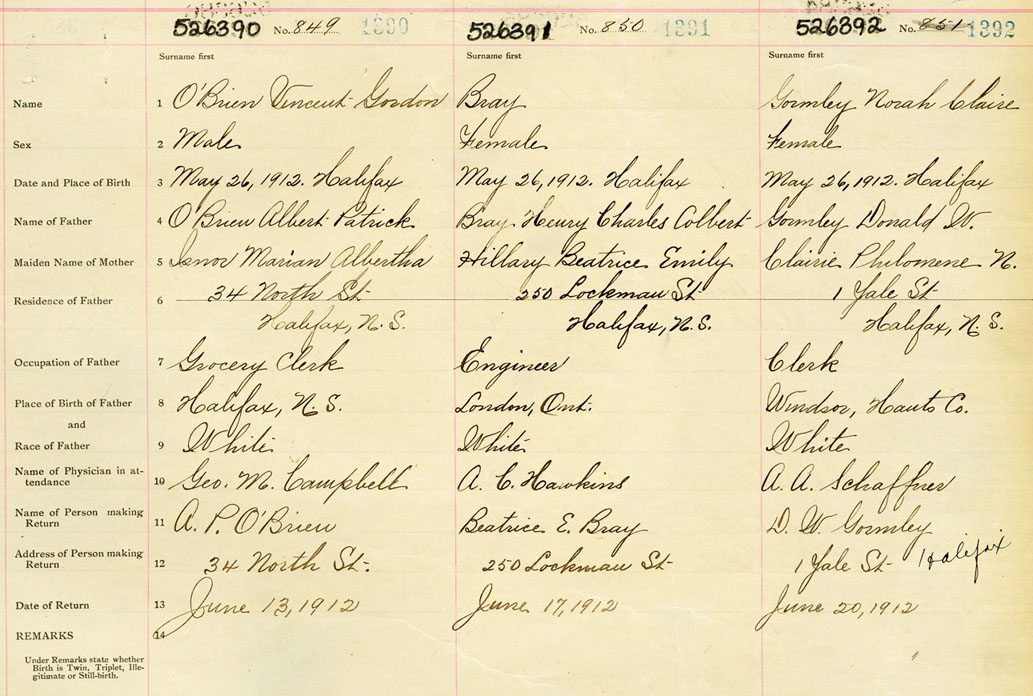 526390 No. 849 1390 526391 No. 850 1391 526392 No. 851 1392
Surname first Surname first Surname first
Name 1 O'Brien Vincent Gordon Bray Gormley Norah Claire
Sex 2 Male Female Female
Date and Place of Birth 3 May 26, 1912. Halifax May 26, 1912. Halifax May 26, 1912. Halifax
Name of Father 4 O'Brien Albert Patrick Bray Henry Charles Colbert Gormley Donald W.
Maiden Name of Mother 5 Isnor Marian Albertha Hillary Beatrice Emily Clairie Philomene N.
Residence of Father 6 34 North St 250 Lockman St 1 Yale St
Halifax, N.S. Halifax, N.S. Halifax, N.S.
Occupation of Father 7 Grocery Clerk Engineer Clerk
Place of Birth of Father 8 Halifax, N.S. London, Ont. Windsor, Hants Co.
and
Race of Father 9 White White White
Name of Physician in at-
tendance 10 Geo. M. Campbell A. C. Hawkins A. A. Schaffner
Name of Person making
Return 11 A. P. O'Brien Beatrice E. Bray D. W. Gormley
Address of Person making
Return 12 34 North St. 250 Lockman St 1 Yale St Halifax
Date of Return 13 June 13, 1912 June 17, 1912 June 20, 1912
REMARKS 14
Under Remarks state whether
Birth is Twin, Triplet, Ille-
gitimate or Still-birth.